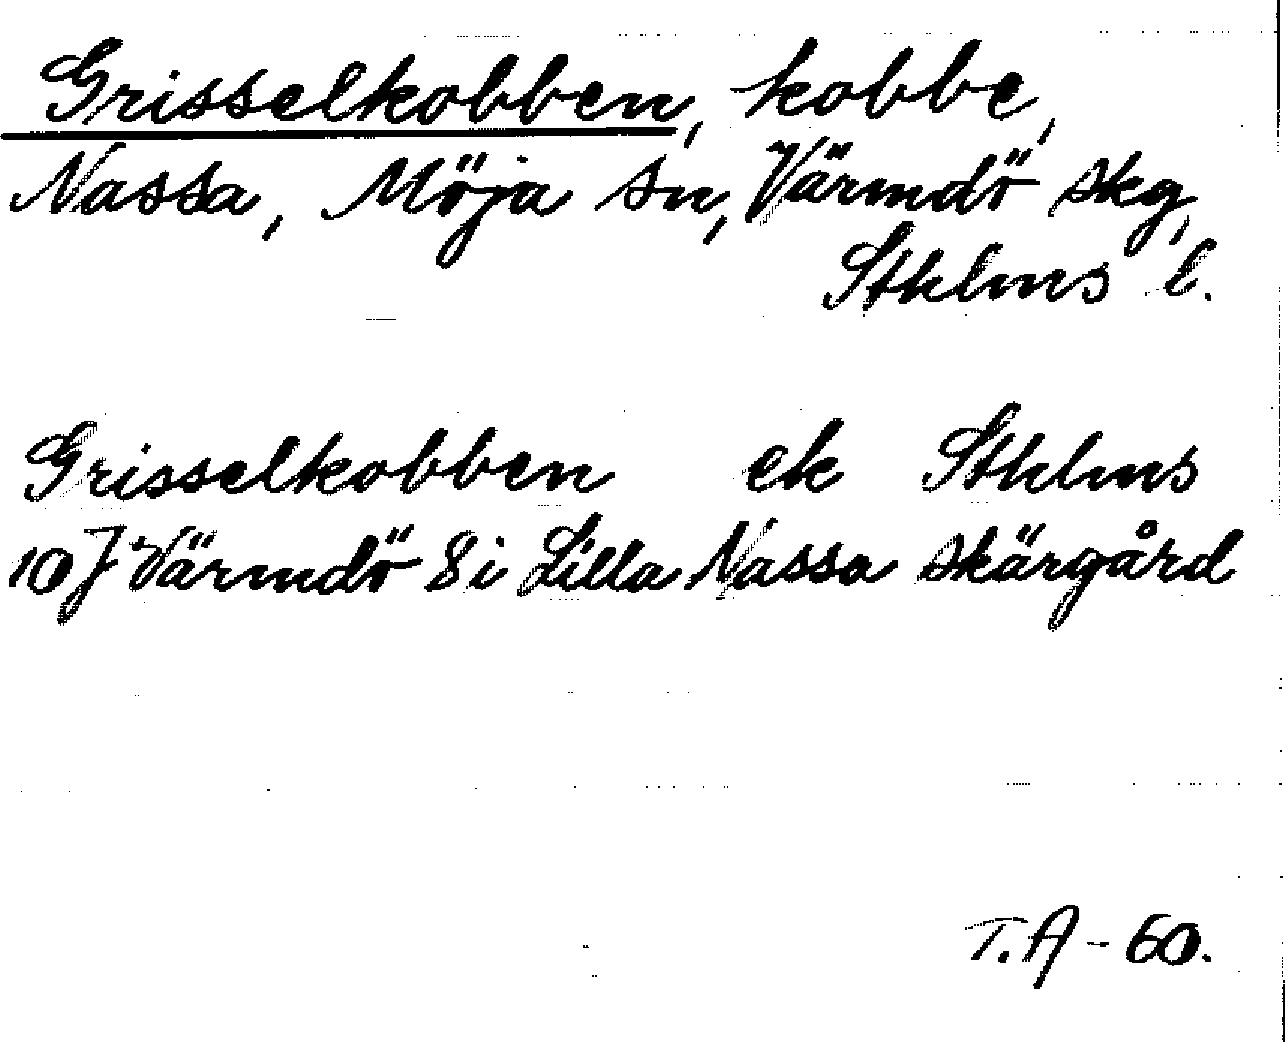 Grisselkobben, kobbe,
Nassa, Möja sn, Värmdö skg,
Sthlms l.
Grisselkobben ek Sthlms
10 J Värmdö 8 i Lilla Nassa skärgård
T.A - 60.